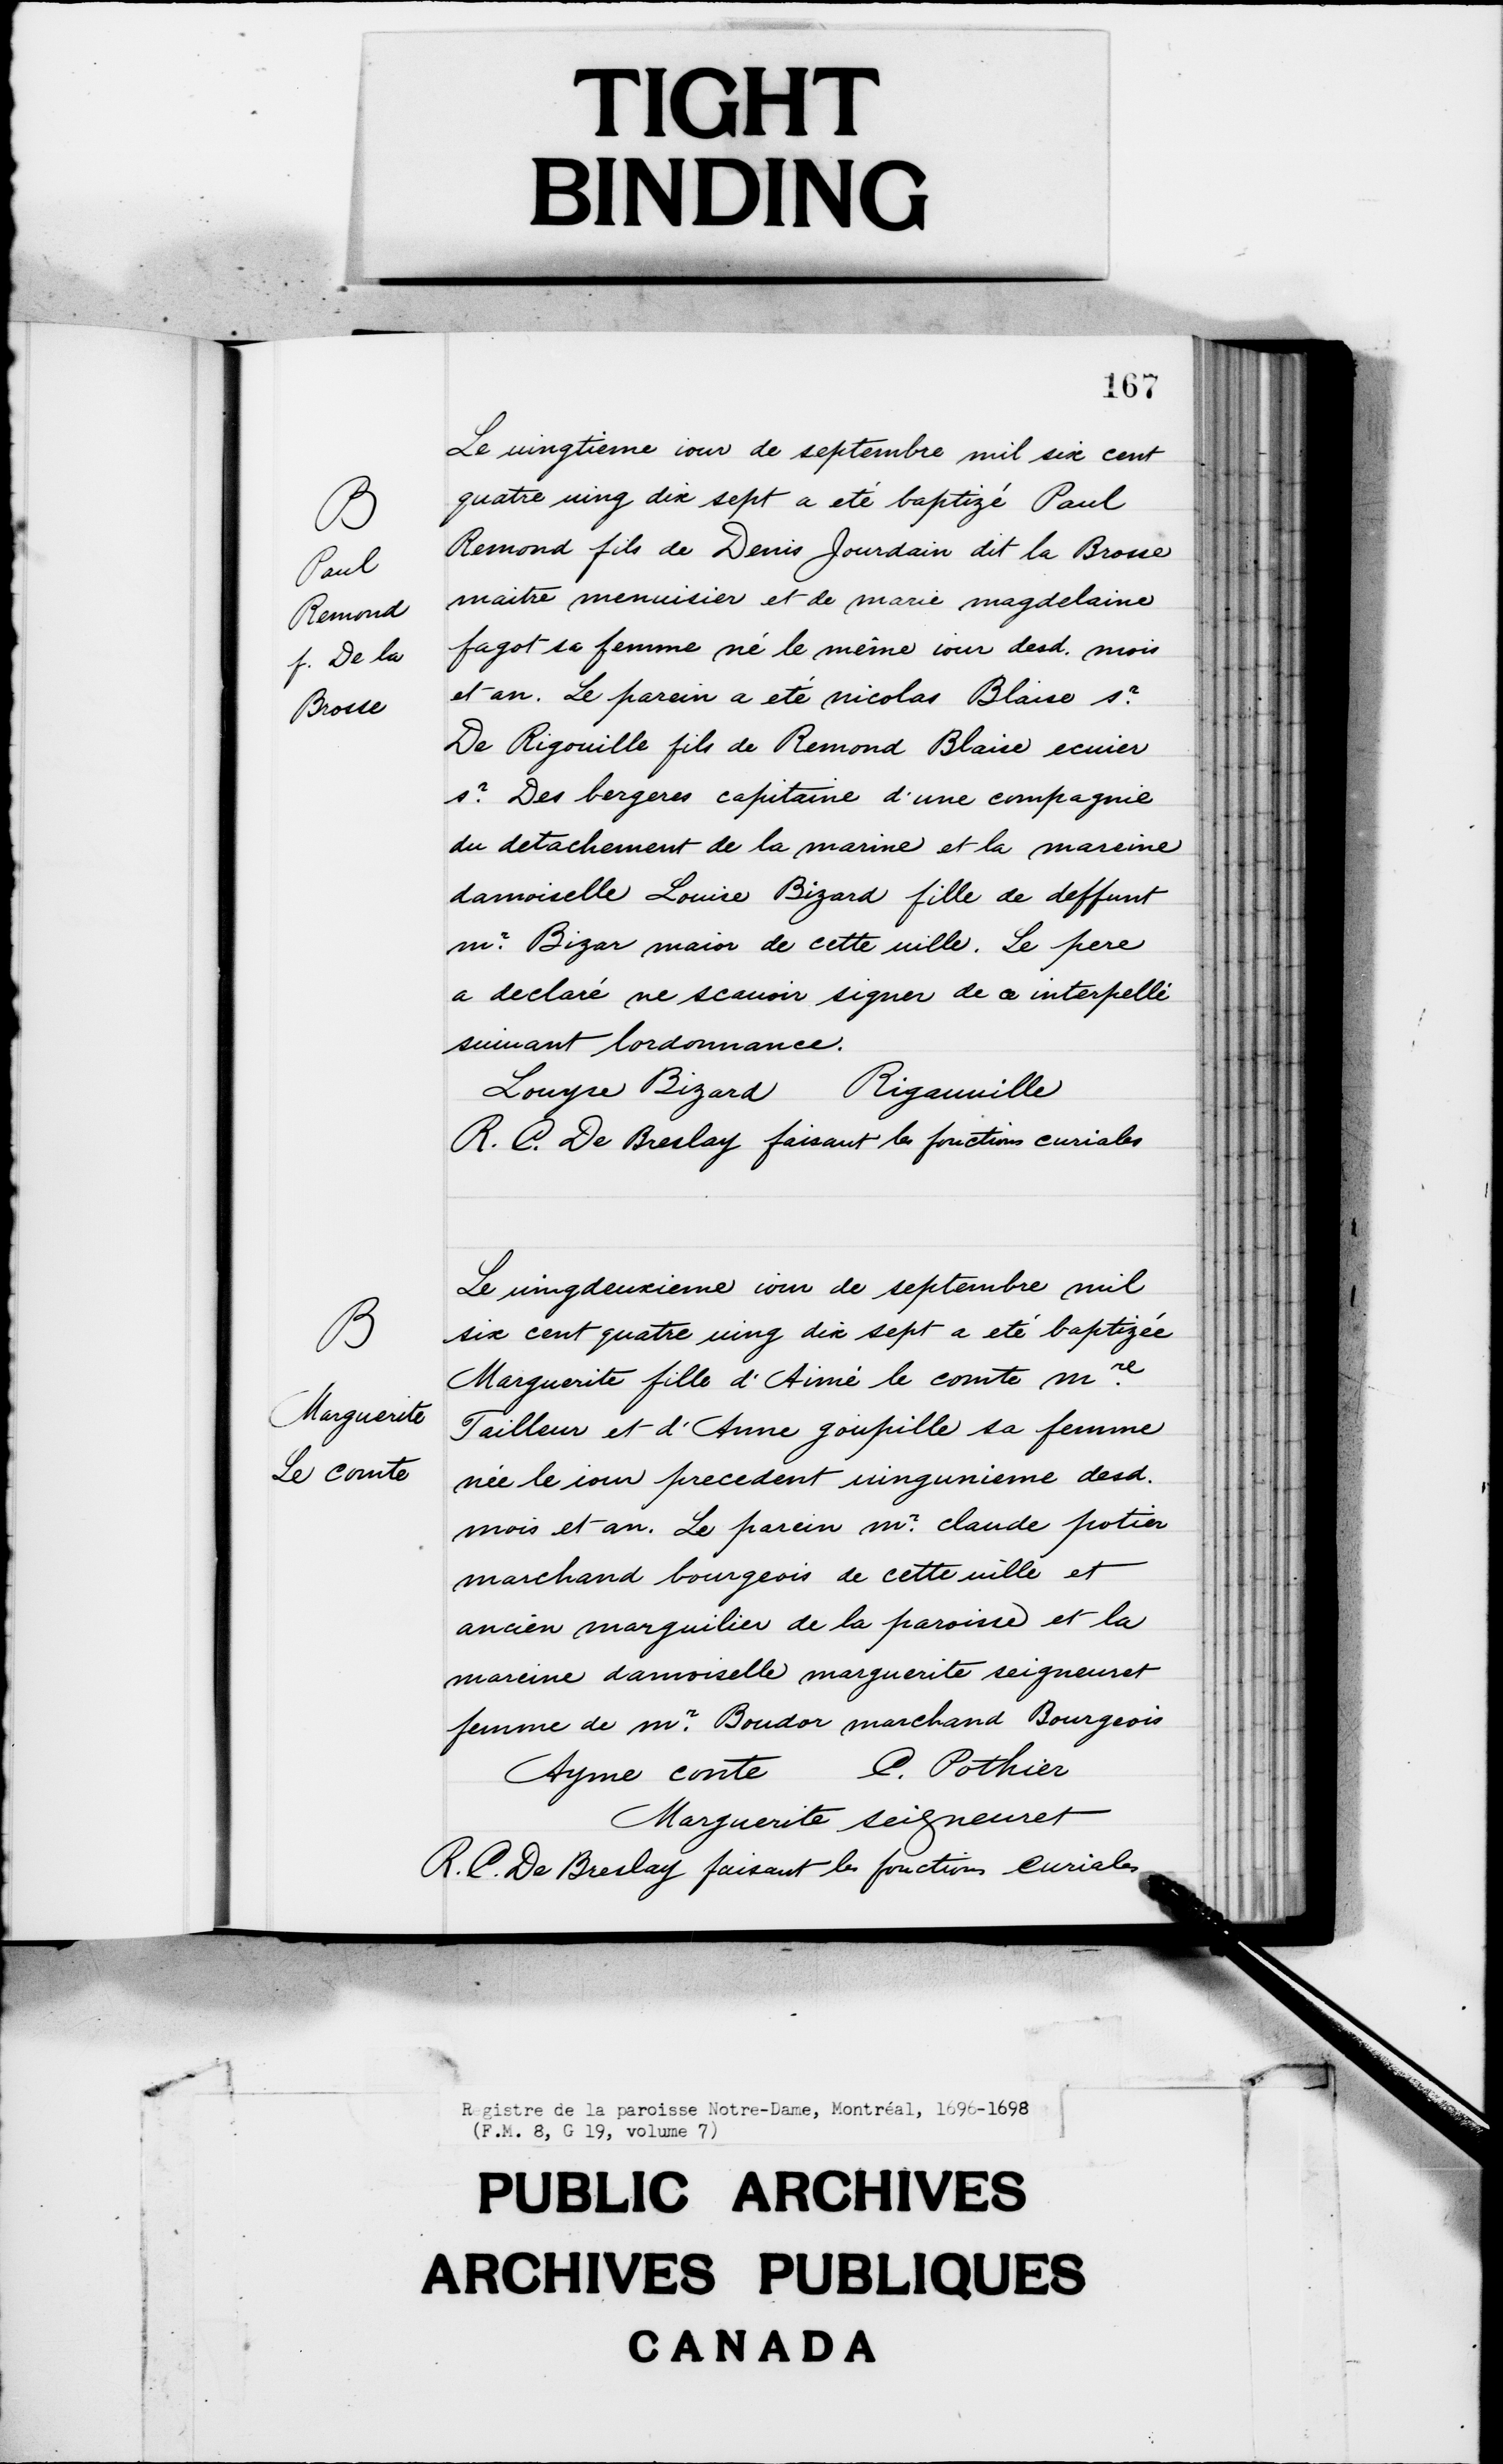 TIGHT
BINDING
167
B
Paul
Remond
f. De la
Brosse
Le uingtieme iour de septembre mil six cent
quatre uing dix sept a eté baptizé Paul
Remond fils de Denis Jourdain dit la Brosse
maitre menuisier et de marie magdelaine
fagot sa femme né le même iour desd. mois
et an. Le parein a eté nicolas Blaise sr.
De Rigouille fils de Remond Blaise ecuier
sr. Des bergeres capitaine d'une compagnie
du detachement de la marine et la mareine
damoiselle Louise Bizard fille de deffunt
mr. Bizar maior de cette uille. Le pere
a declaré ne scauoir signer de ce interpellé
suiuant lordonnance.
Louyse Bizard Rigauuille
R. C. De Breslay faisant les fonctions curiales
B
Marguerite
Le comte
Le uingdeuxieme iour de septembre mil
six cent quatre uing dix sept a eté baptizée
Marguerite fille d'Aimé le comte mre.
Tailleur et d'Anne goupille sa femme
née le iour precedent uingunieme desd.
mois et an. Le parein mr. claude potier
marchand bourgeois de cette uille et
ancien marguilier de la paroisse et la
mareine damoiselle marguerite seigneuret
femme de mr. Boudor marchand Bourgeois
Ayme conte C. Pothier
Marguerite seigneuret
R. C. De Breslay faisant les fonctions Curiales
R gistre de la paroisse Notre-Dame, Montréal, 1696-1698
(F.M. 8, G 19, volume 7)
PUBLIC ARCHIVES
ARCHIVES PUBLIQUES
CANADA